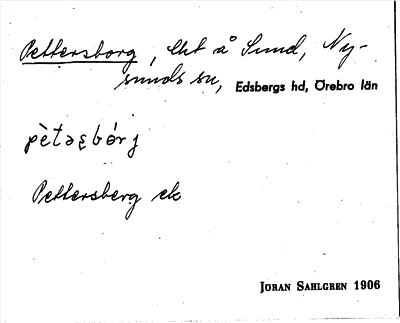 Pettersborg, lht å Sund, Ny-
sunds sn, Edsbergs hd, Örebro län
pètəʂbórj
Pettersberg ek
JÖRAN SAHLGREN 1906